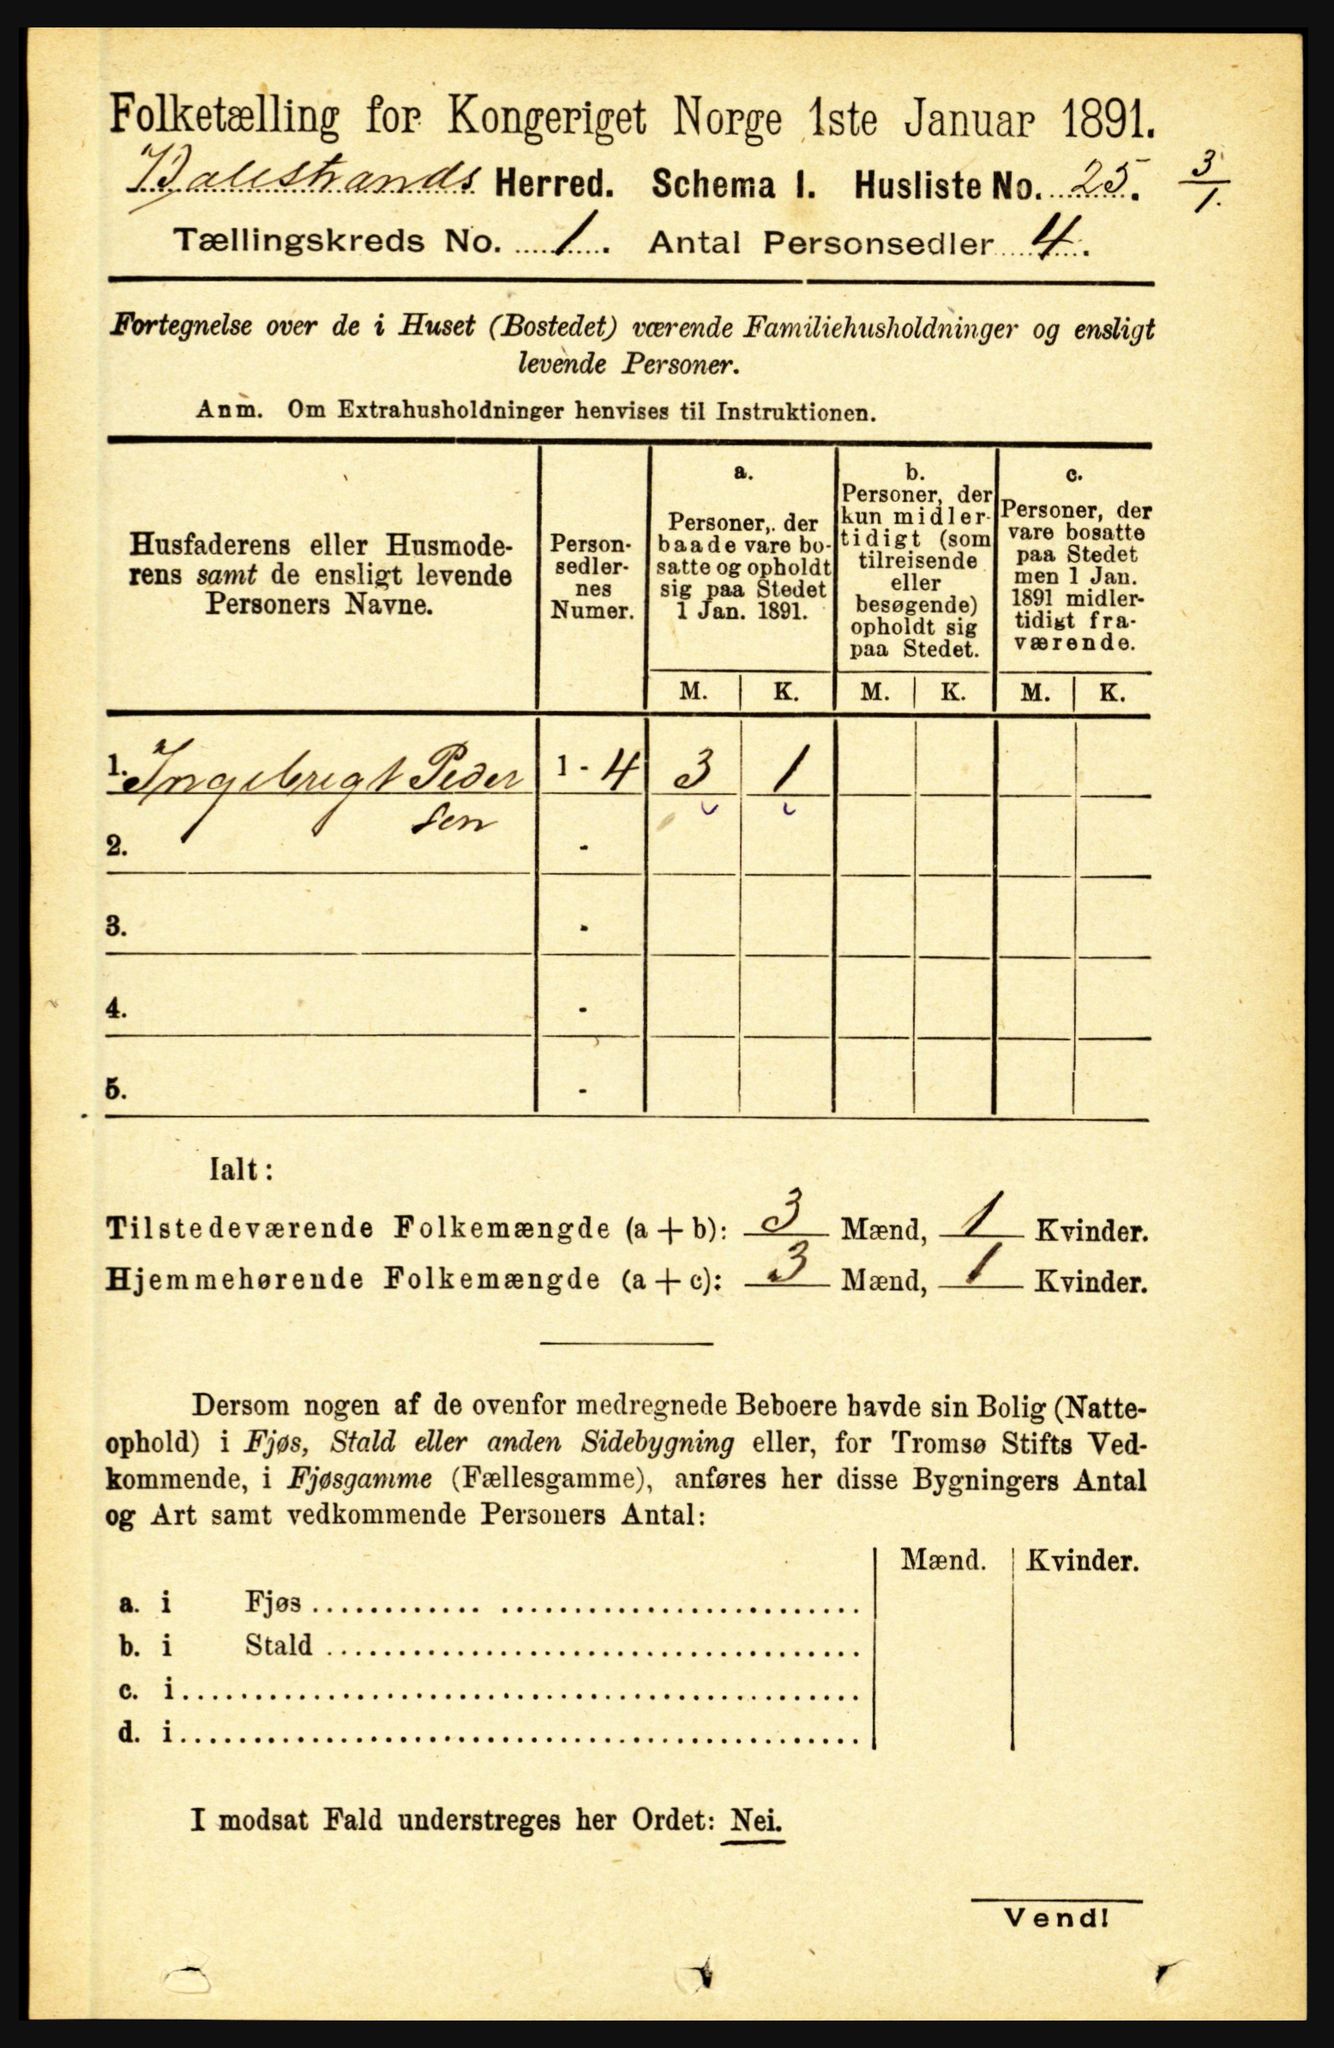 Folketælling for Kongeriget Norge 1ste Januar 1891.
Balestrands Herred. Schema I. Husliste No. 25. 3/1.
Tællingskreds No. 1. Antal Personsedler 4.
Fortegnelse over de i Huset (Bostedet) værende Familiehusholdninger og ensligt
levende Personer.
Anm. Om Extrahusholdninger henvises til Instruktionen.
Husfaderens eller Husmode-
rens samt de ensligt levende
Personers Navne.
Person-
sedler-
nes
Numer.
a.
Personer, der
baade vare bo-
satte og opholdt
sig paa Stedet
1 Jan. 1891.
b.
Personer, der
kun midler-
tidigt (som
tilreisende
eller
besøgende)
opholdt sig
paa Stedet.
c.
Personer, der
vare bosatte
paa Stedet
men 1 Jan.
1891 midler-
tidigt fra-
værende.
M. K. M. K. M. K.
1. Ingebrigt Peder 1 - 4 3 1
sen
2. -
3. -
4. -
5. -
Ialt:
Tilstedeværende Folkemængde (a + b): 3 Mænd, 1 Kvinder.
Hjemmehørende Folkemængde (a + c): 3 Mænd, 1 Kvinder.
Dersom nogen af de ovenfor medregnede Beboere havde sin Bolig (Natte-
ophold) i Fjøs, Stald eller anden Sidebygning eller, for Tromsø Stifts Ved-
kommende, i Fjøsgamme (Fællesgamme), anføres her disse Bygningers Antal
og Art samt vedkommende Personers Antal:
Mænd. Kvinder.
a. i Fjøs
b. i Stald
c. i
d. i
I modsat Fald understreges her Ordet: Nei.
Vend!